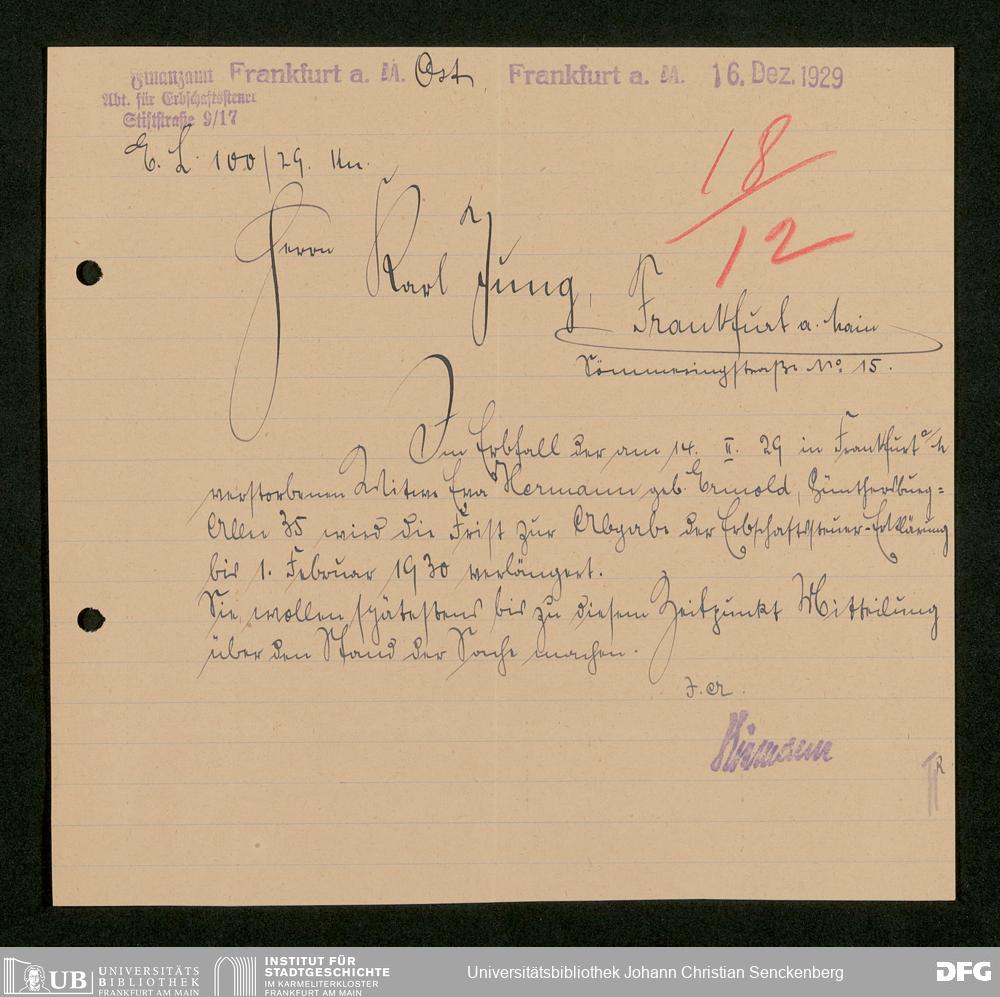 Finanzamt Frankfurt a. M. Ost Frankfurt a. M. 16. Dez. 1929
Abt. für Erbschaftssteuer
Stiftstraße 9/17
E. L. 100/29.
18/12
Herrn Karl Jung,
Frankfurt a. Main
Sömmeringstraße No 15.
Im Erbfall der am 14. II. 29 in Frankfurt a/M
verstorbenen Witwe Eva Hermann geb. Ermold, Günthersburg=
Allee 35 wird die Frist zur Abgabe der Erbschaftssteuer-Erklärung
bis 1. Februar 1930 verlängert.
Sie wollen spätestens bis zu diesem Zeitpunkt Mitteilung
über den Stand der Sache machen.
UB UNIVERSITÄTS
BIBLIOTHEK
FRANKFURT AM MAIN
INSTITUT FÜR
STADTGESCHICHTE
IM KARMELITERKLOSTER
FRANKFURT AM MAIN
Universitätsbibliothek Johann Christian Senckenberg
DFG